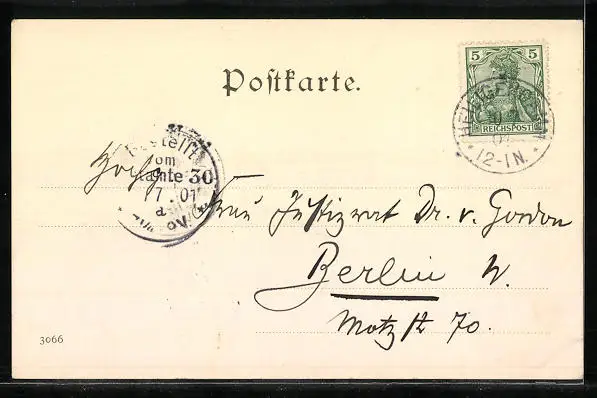 Postkarte.
5 5
REICHSPOST
12-1N.
Bestellt
vom
Postamte 30
7.01
Frau Justizrat Dr. v. Gordon
Berlin W.
Motzstr 70.
3066